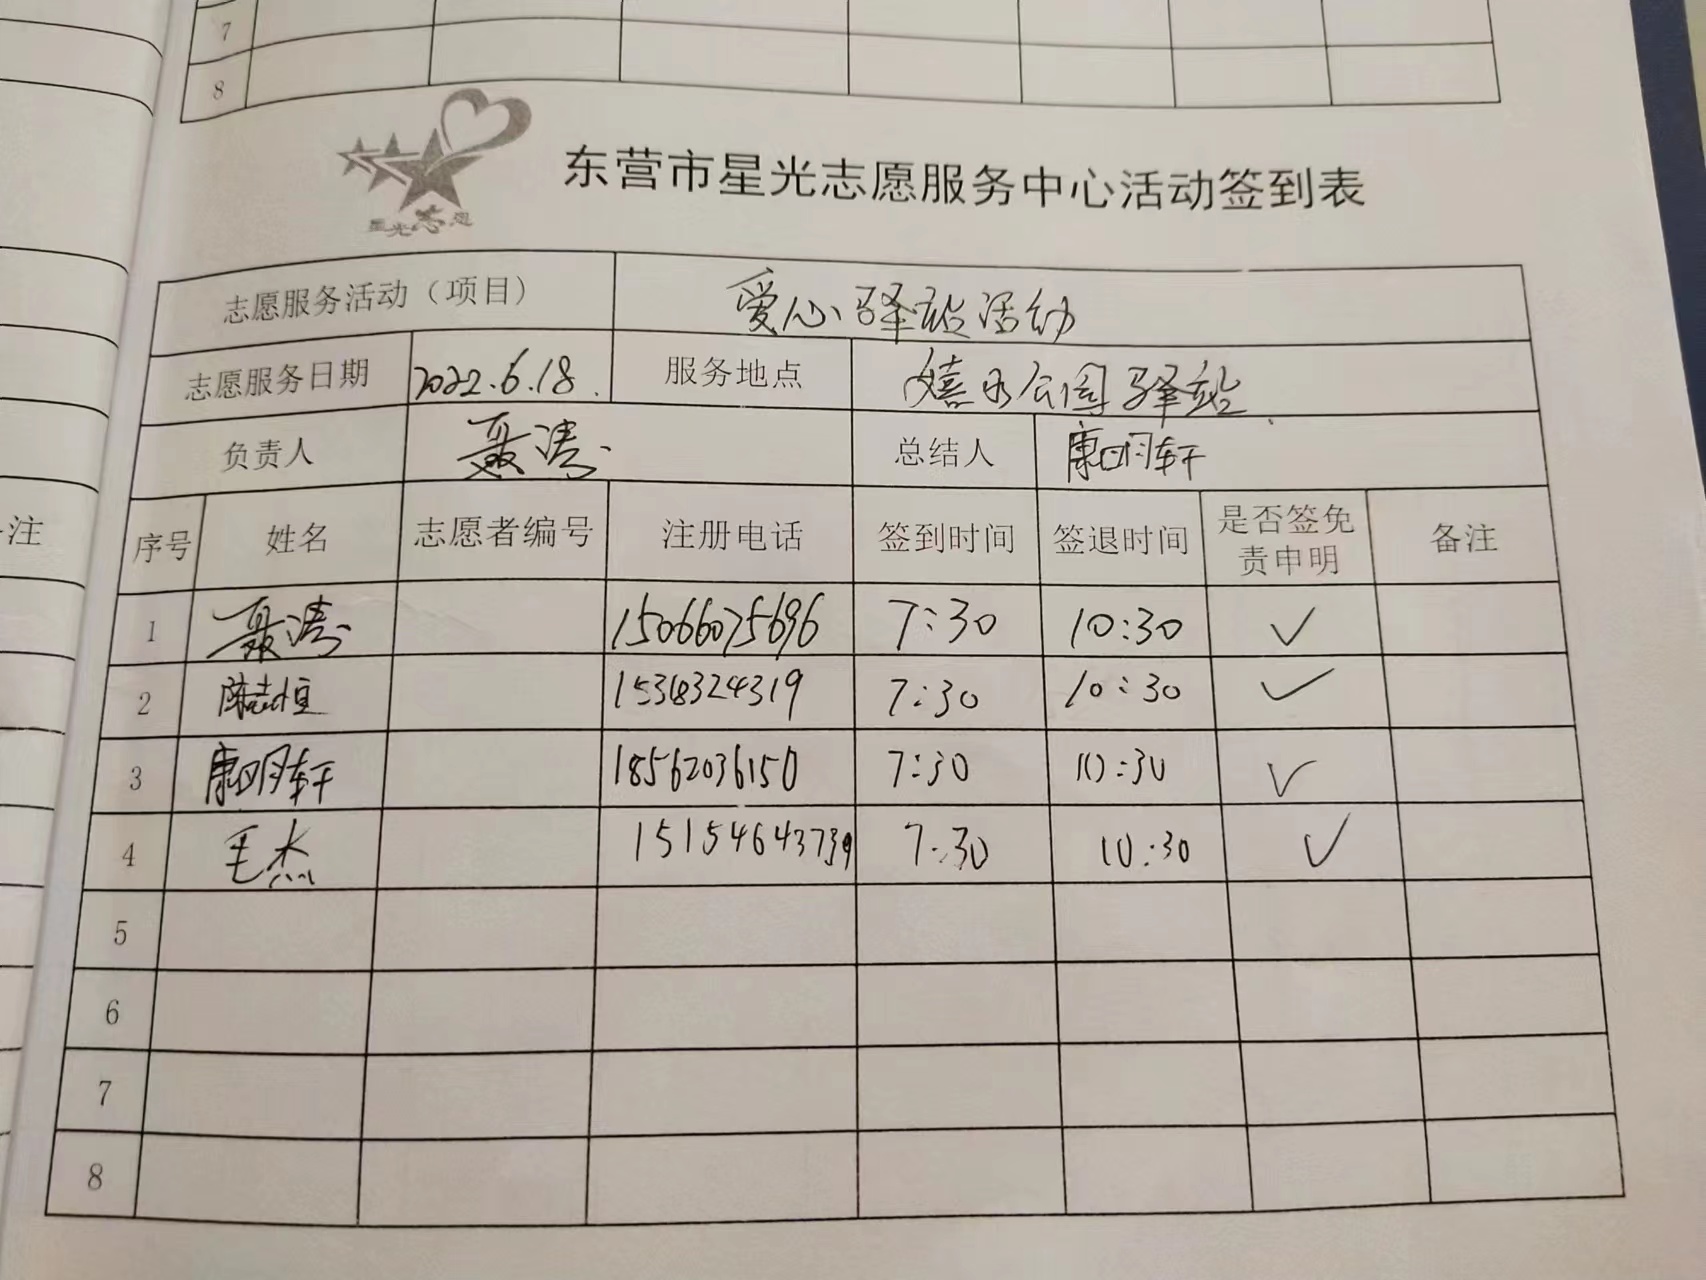 7
8
星光志愿
东营市星光志愿服务中心活动签到表
志愿服务活动（项目） 爱心驿站活动
志愿服务日期 2022.6.18. 服务地点 嬉水公园驿站
负责人 聂涛 总结人 康明轩
注
序号 姓名 志愿者编号 注册电话 签到时间 签退时间 是否签免责申明 备注
1 聂涛 15066075696 7:30 10:30 ✓
2 陈志恒 15318324319 7:30 10:30 ✓
3 康明轩 18562036150 7:30 10:30 ✓
4 毛杰 15154643739 7:30 10:30 ✓
5
6
7
8